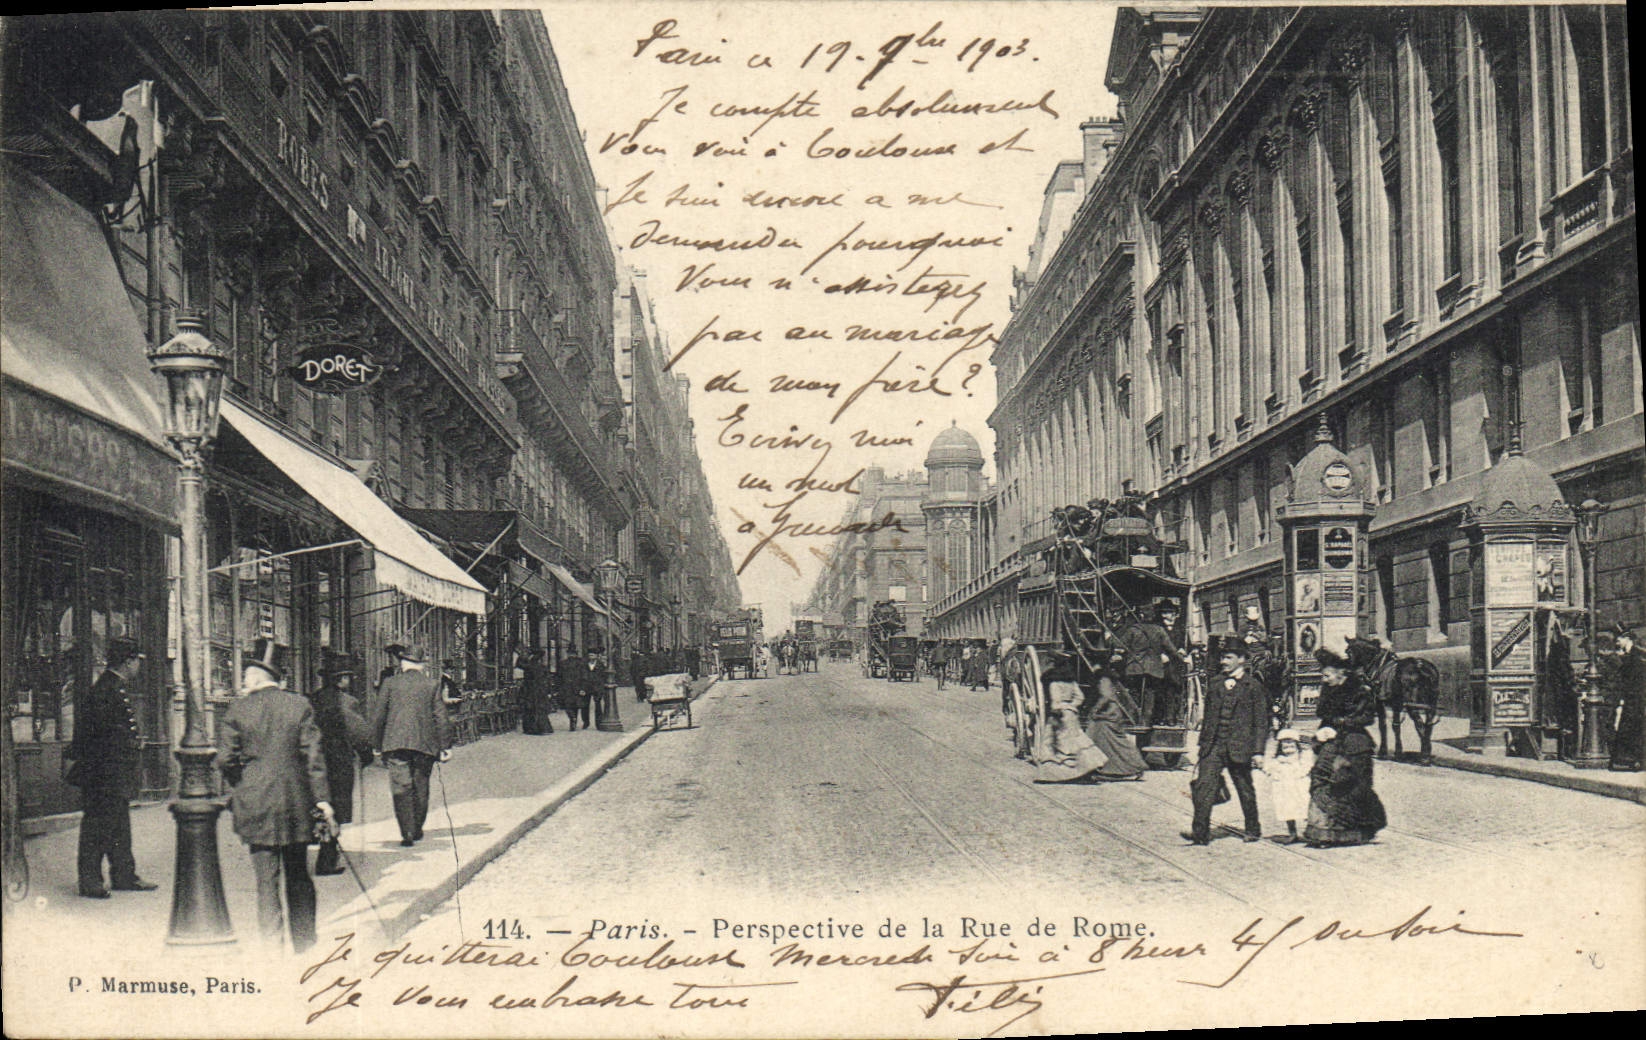 Paris ce 19. 9bre 1903.
Je compte absolument
vous voir à Toulouse et
Je suis encore a me
demander pourquoi
vous n'assisterez
pas au mariage
de mon frère?
Ecrivez moi
un mot
à
ROBES
DORET
114. — Paris. - Perspective de la Rue de Rome.
Je quitterai Toulouse Mercredi soir à 8 heures 45 du soir
Je vous embrasse tous
P. Marmuse, Paris.